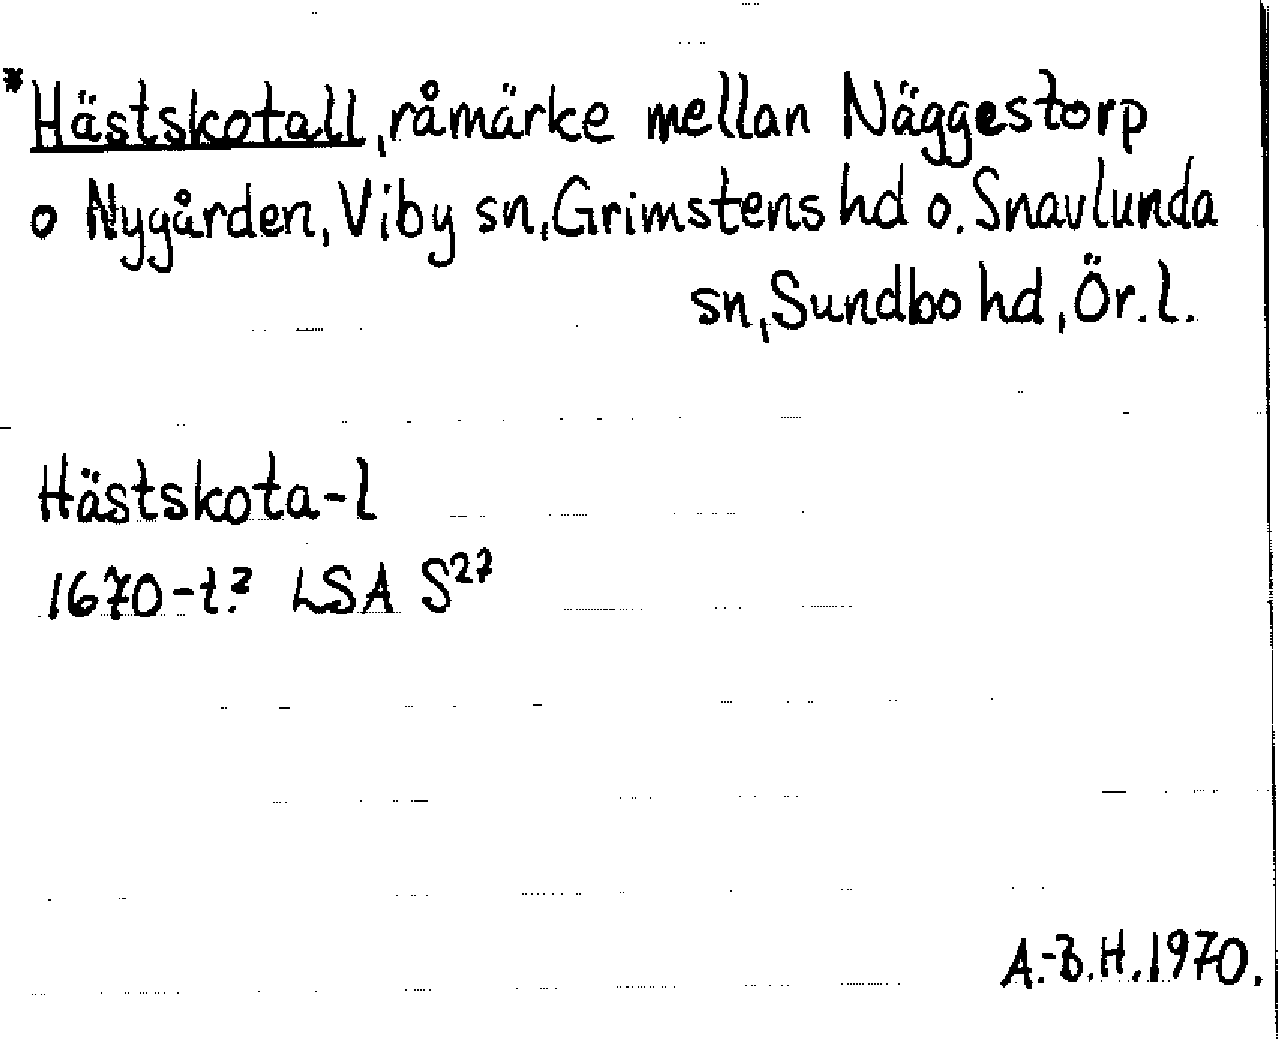 *Hästskotall, råmärke mellan Näggestorp
o Nygården, Viby sn, Grimstens hd o. Snavlunda
sn, Sundbo hd, Ör. l.
Hästskota-l
1670-t.? LSA S27
A.-B.H. 1970.